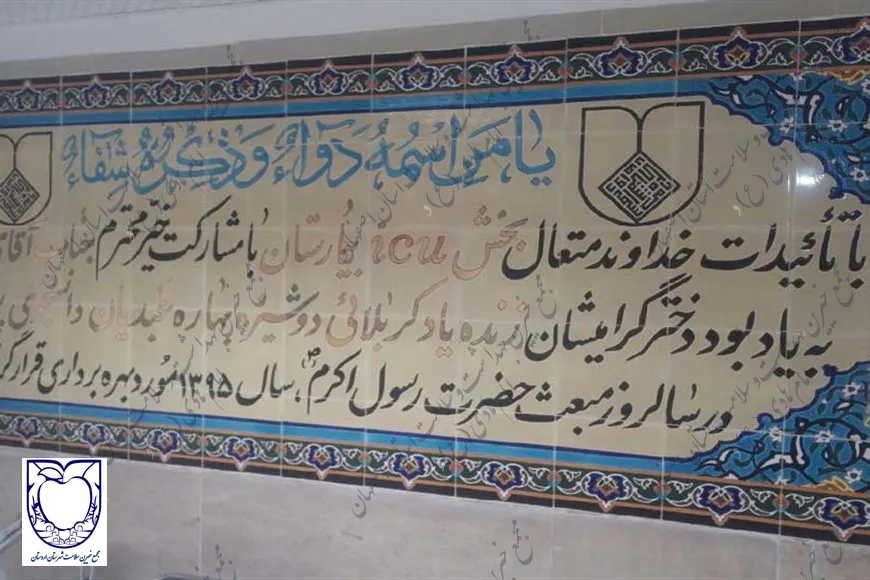 یا مَن اسْمُهُ دَوآءٌ وَ ذِکْرُهُ شِفآءٌ
با تأئیدات خداوند متعال بخش icu بیمارستان با مشارکت خیّر محترم جناب آقای
به یاد بود دختر گرامیشان زنده یاد کربلائی دوشیزه بهاره عبدیان دانشجوی
در سالروز مبعث حضرت رسول اکرم (ص)، سال ۱۳۹۵ مورد بهره برداری قرار
مجمع خیرین سلامت شهرستان اردستان